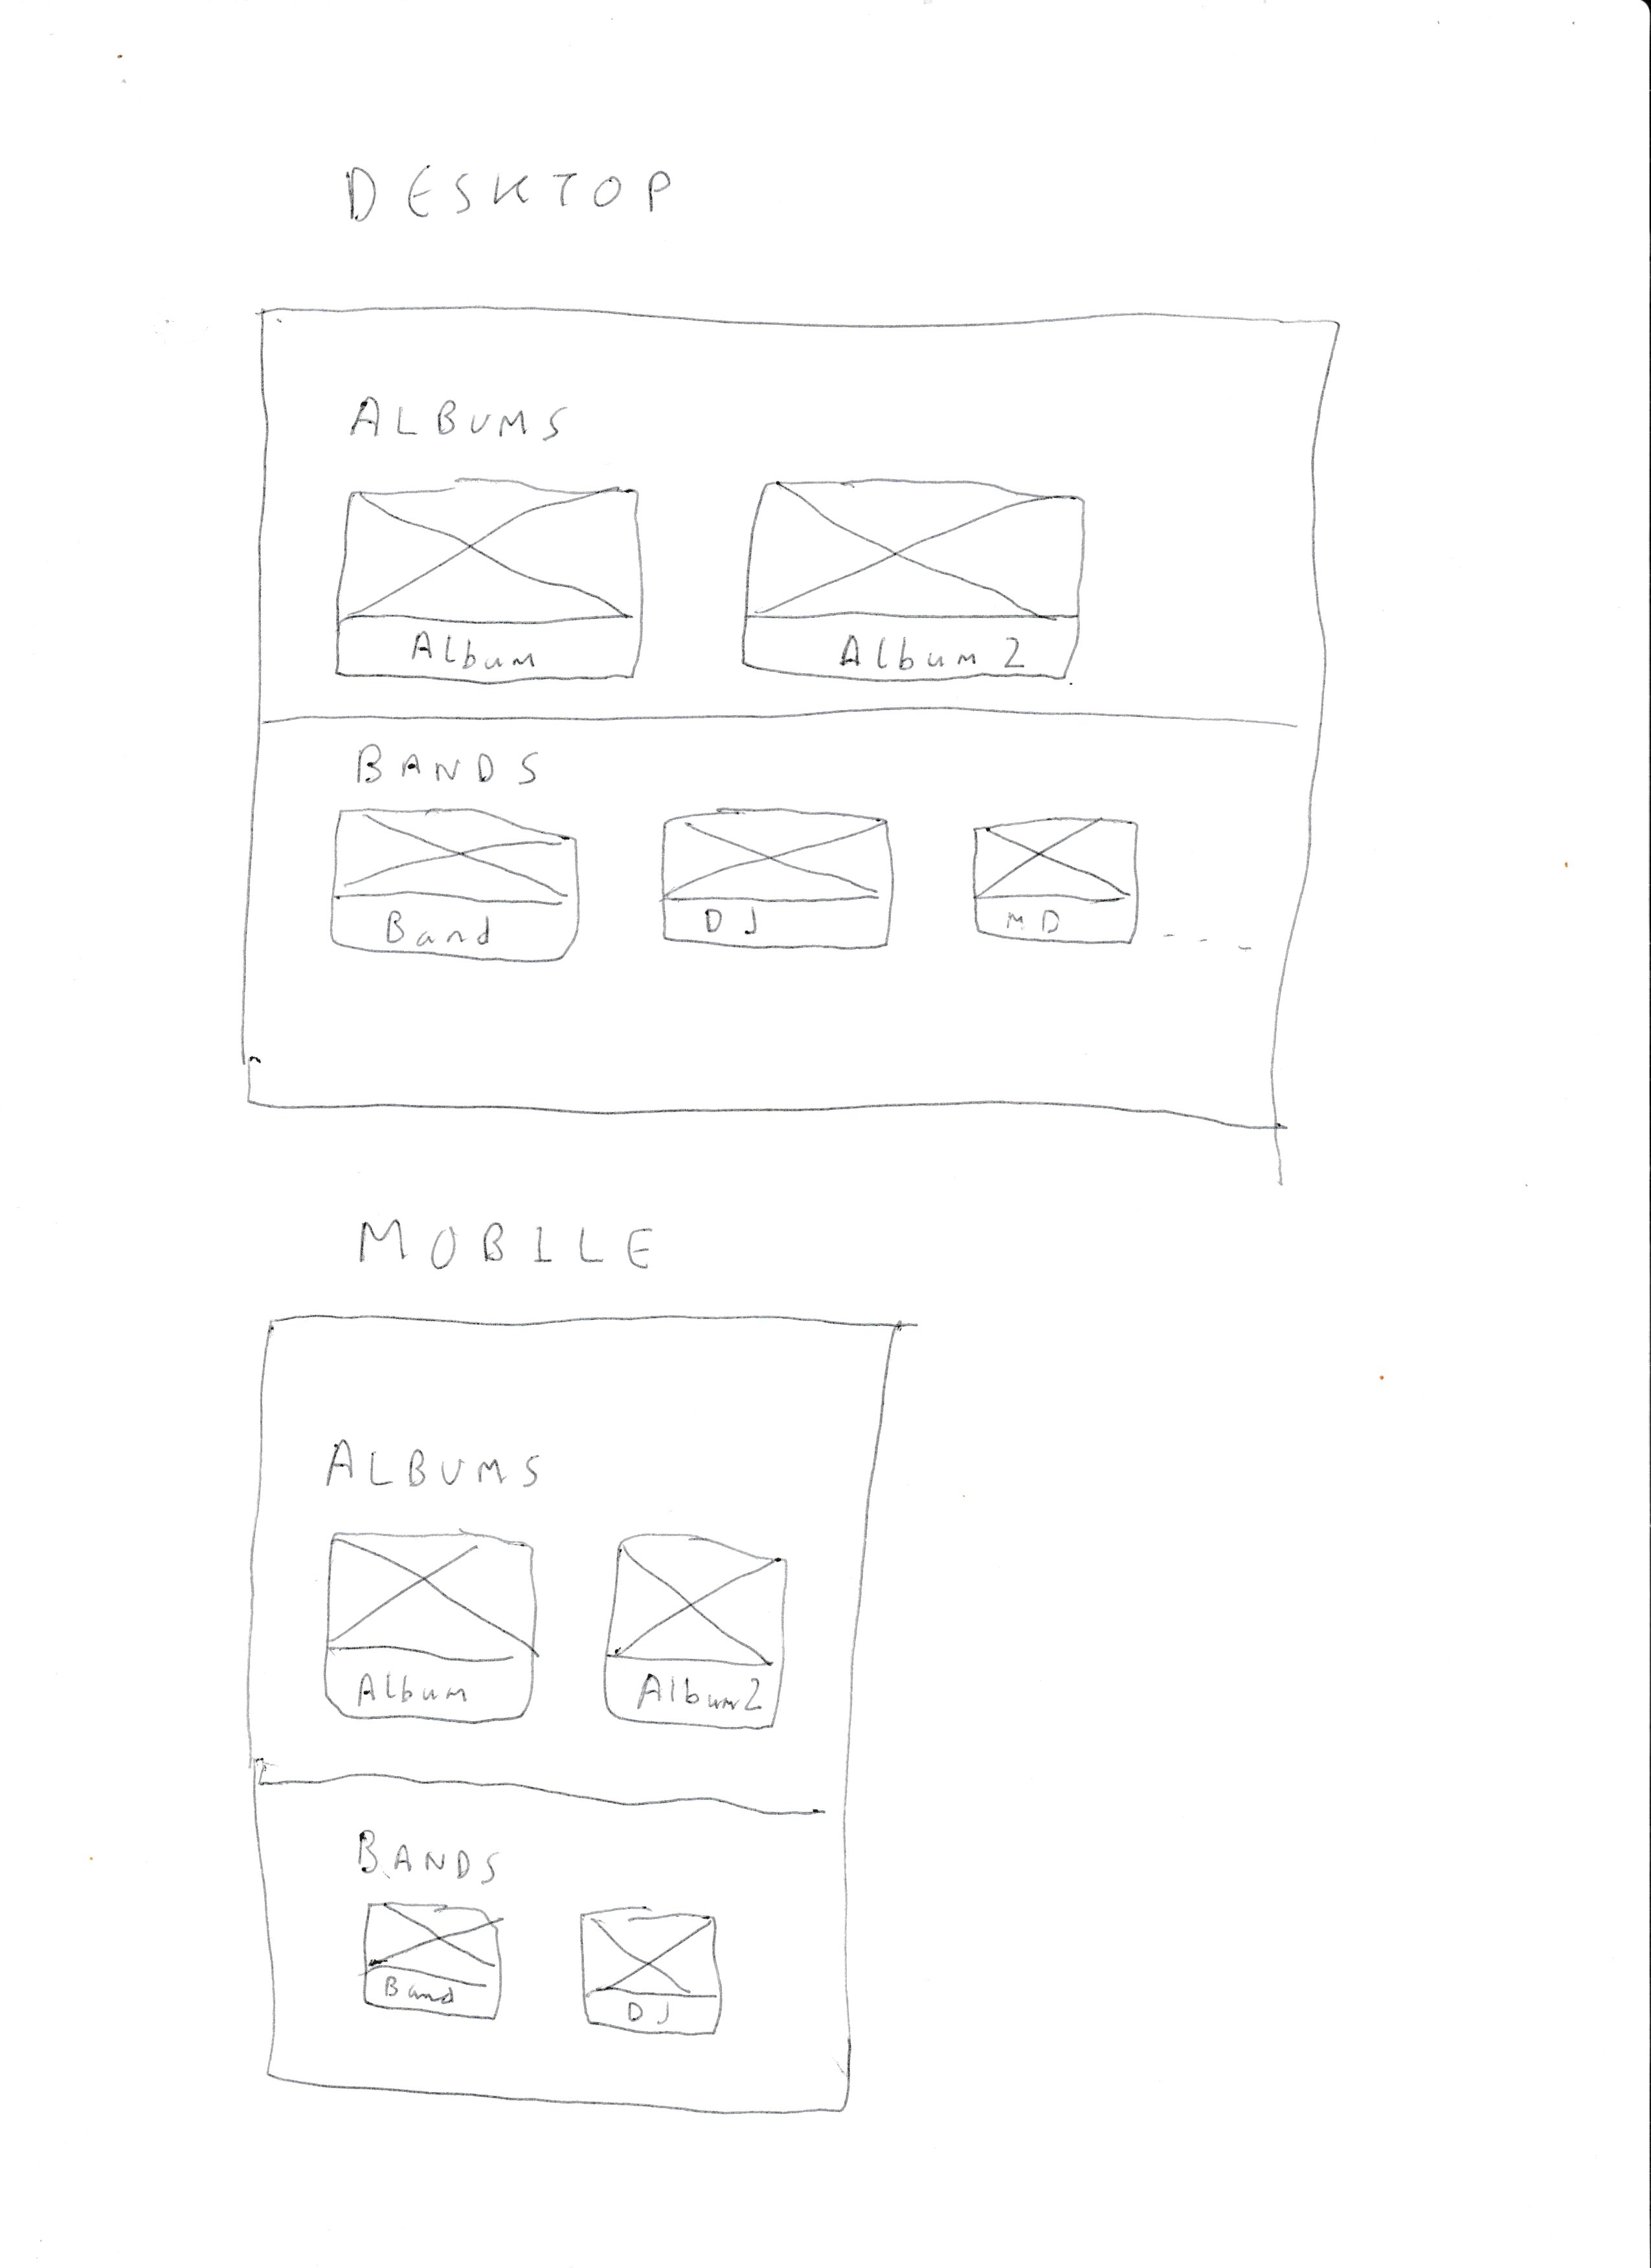 DESKTOP
ALBUMS
Album Album 2
BANDS
Band DJ MD
MOBILE
ALBUMS
Album Album 2
BANDS
Band DJ